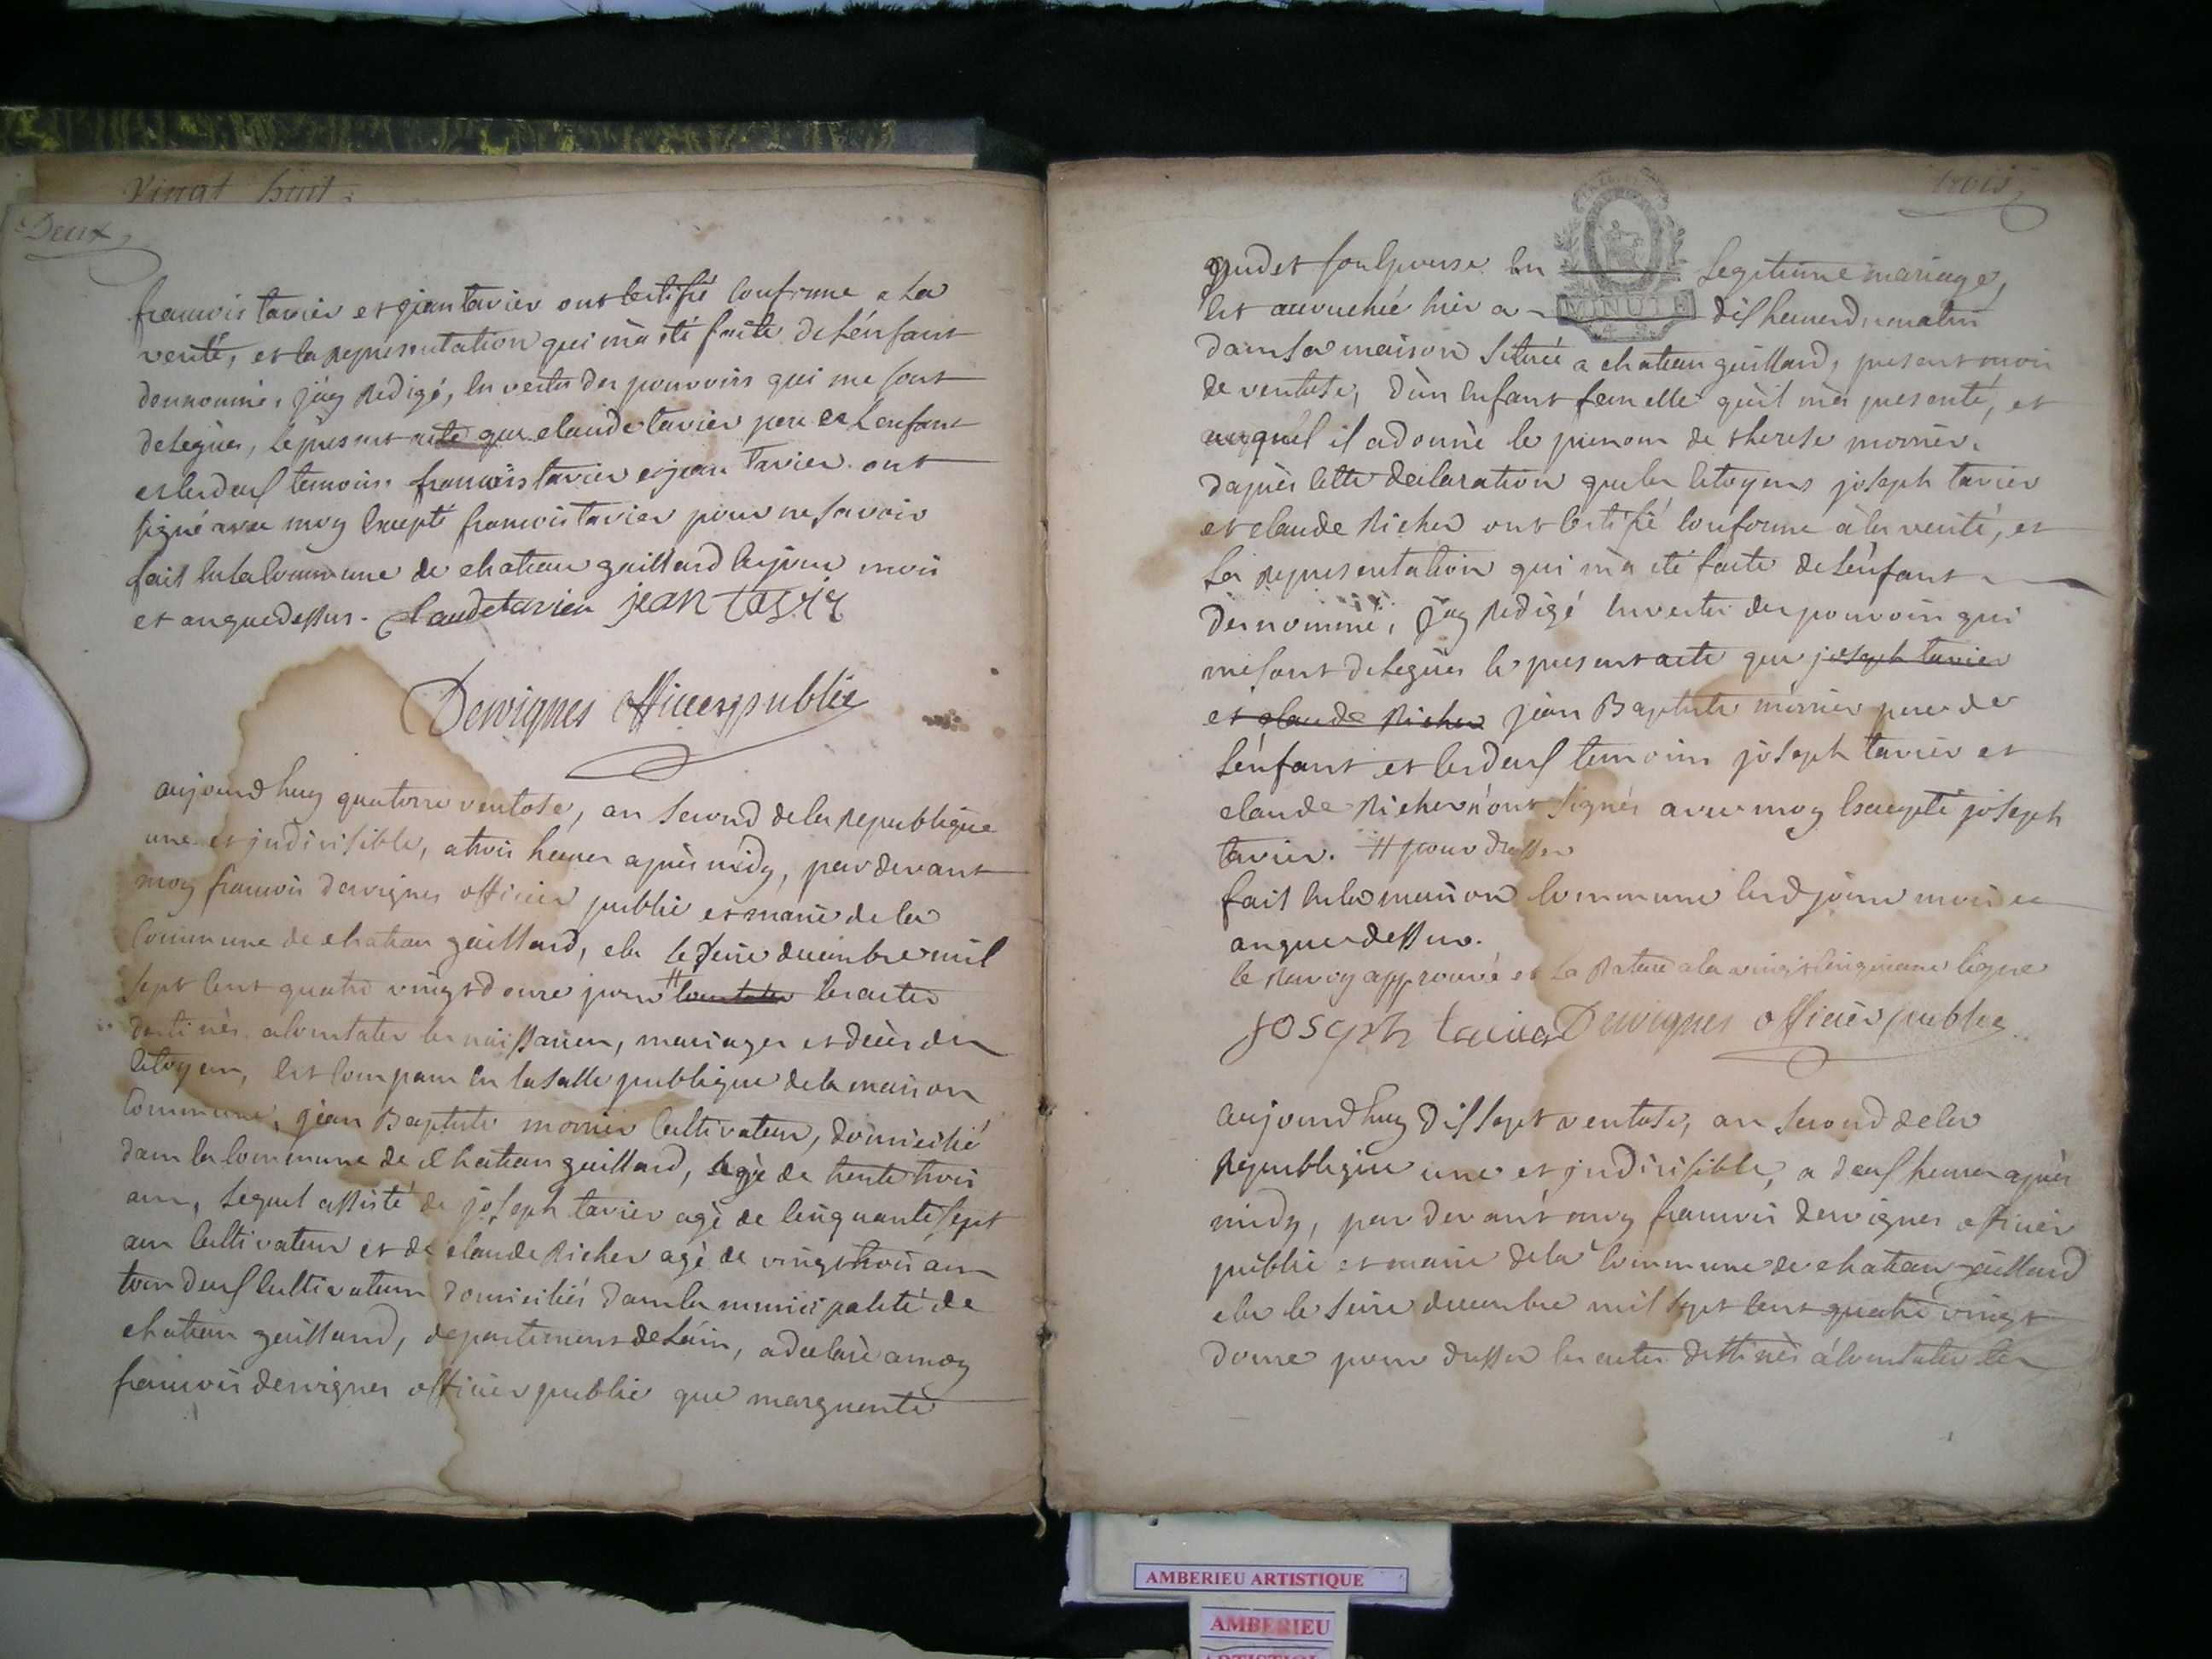 Vingt huit
Deux
francois tavier et jean tavier ont certifié conforme a la
verité, et la representation qui m'a été faite de l'enfant
denommé, j'ay redigé, en vertu des pouvoirs qui me sont
delegués, le present acte que claude tavier pere de l'enfant
et les deux temoins francois tavier et jean tavier ont
signé avec moy excepté francois tavier pour ne savoir
fait en la commune de chateau gaillard les jour mois
et an que dessus. Claude tavier jean tavier
Dervignes officier public
aujourd huy quatorze ventose, an second de la republique
une et indivisible, a trois heures après midy, par devant
moy francois dervignes officier public et maire de la
commune de chateau gaillard, elu le seize decembre mil
sept cent quatre vingt douze pour # constater les actes
destinés a constater les naissances, mariages et decès des
citoyens, est comparu en la salle publique de la maison
commune, jean Baptiste monier cultivateur, domicilié
dans la commune de chateau gaillard, agé de trente trois
ans, lequel assisté de joseph tavier agé de cinquante sept
ans cultivateur et de claude Richer agé de vingt trois ans
tous deux cultivateurs domiciliés dans la municipalité de
chateau gaillard, departement de l'ain, a declaré a moy
francois dervignes officier public que marguerite
trois
son epouse en legitime mariage,
est accouchée hier a dix heures du matin
dans sa maison située a chateau gaillard, present mois
de ventose, d'un enfant femelle qu'il m'a presenté, et
auquel il a donné le prenom de therese monier.
d'après cette declaration que les citoyens joseph tavier
et claude Richer ont certifié conforme à la verité, et
la representation qui m'a été faite de l'enfant
denommé, j'ay redigé en vertu des pouvoirs qui
me sont delegués le present acte que joseph tavier
et claude Richer jean Baptiste monier pere de
l'enfant et les deux temoins joseph tavier et
claude Richer n'ont signés avec moy excepté joseph
tavier. # pour dresser
fait en la maison commune lesd jour mois et
an que dessus.
le renvoy approuvé et la rature a la vingt cinquieme ligne
joseph tavier Dervignes officier public
aujourd huy dix sept ventose, an second de la
republique une et indivisible, a deux heures après
midy, par devant moy francois dervignes officier
public et maire de la commune de chateau gaillard
elu le seize decembre mil sept cent quatre vingt
douze pour dresser les actes destinés a constater les
MINUTE
AMBERIEU ARTISTIQUE
AMBERIEU
ARTISTIQUE